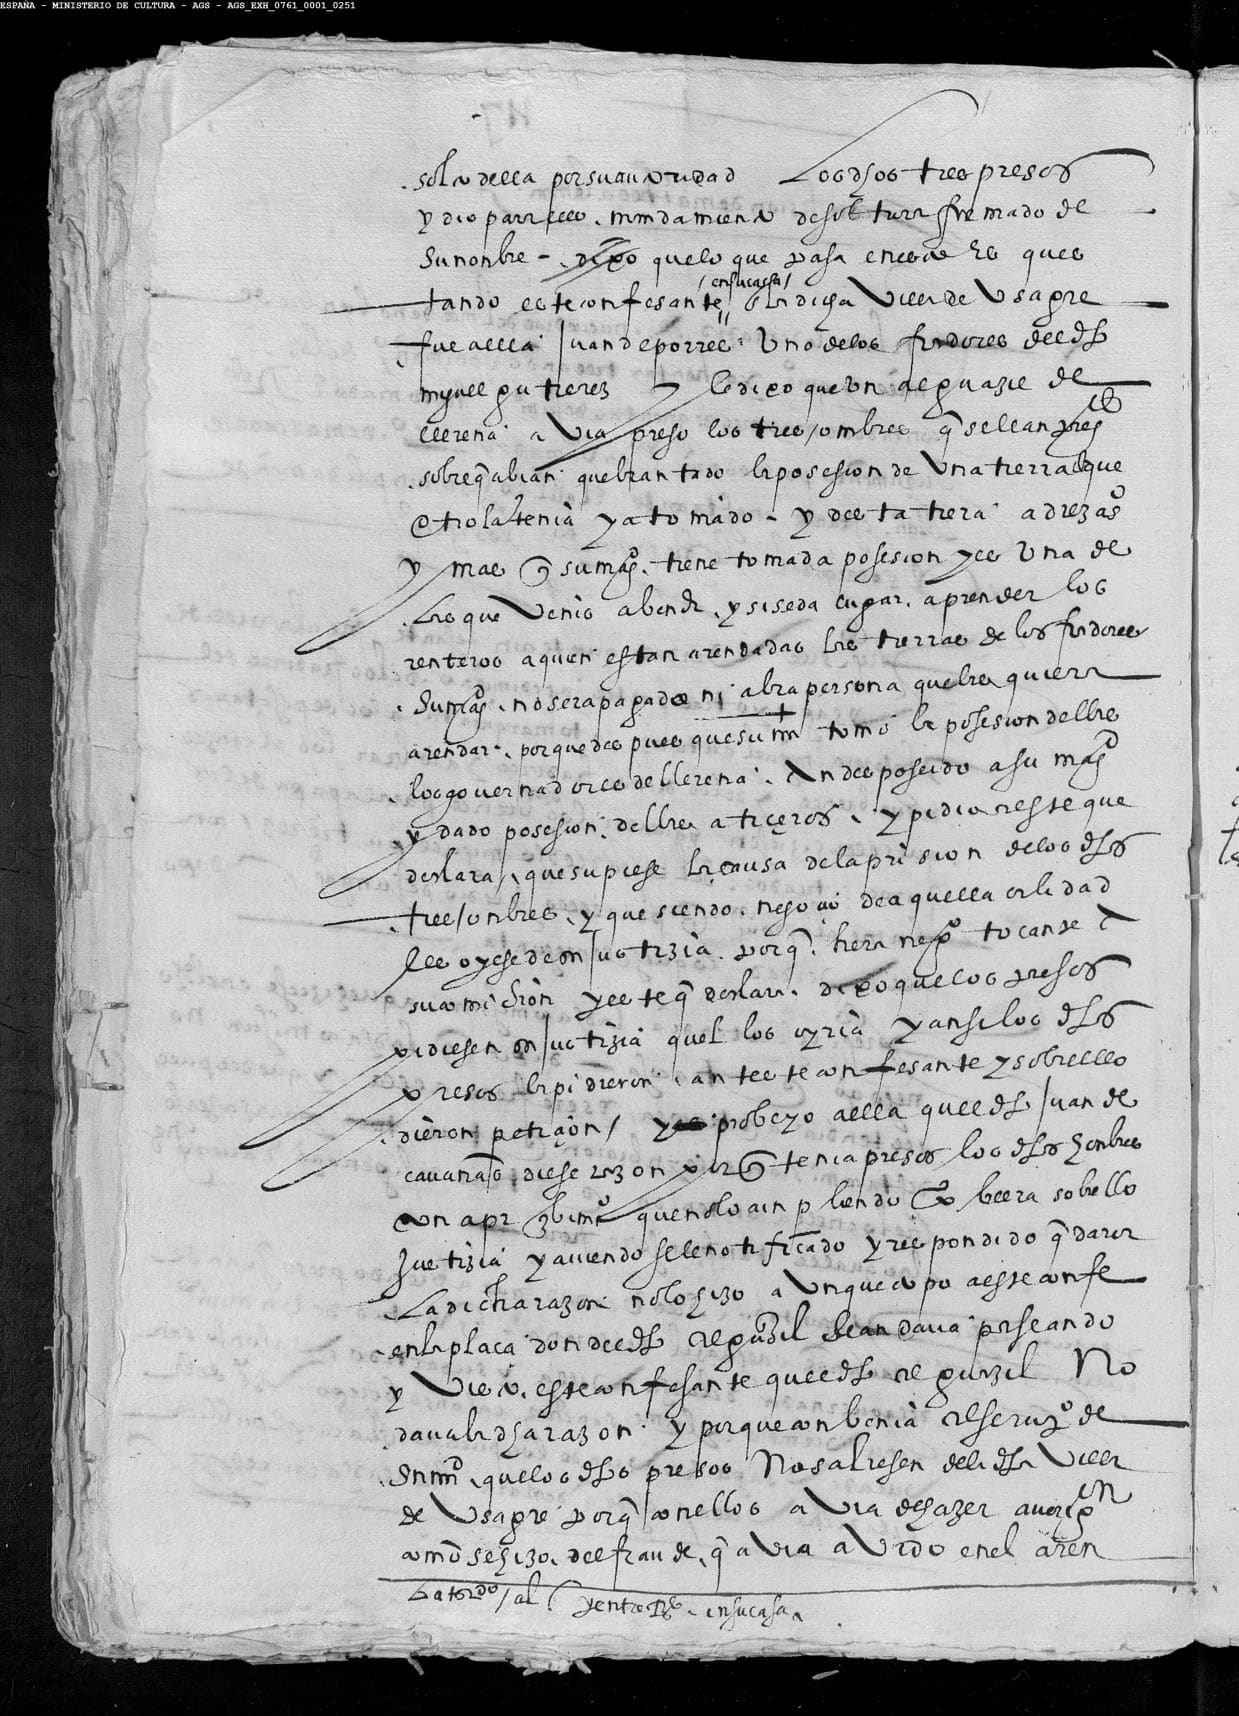 ESPAÑA - MINISTERIO DE CULTURA - AGS - AGS_EXH_0761_0001_0251
solto della por su autoridad Los dhos tres presos
y dio para ello mandamiento de soltura firmado de
su nonbre - dixo que lo que pasa en esto es ques
tando este confesante /en su casa/ en dicha villa de Usagre
fue a ella Juan de porres uno de los fiadores del dho
myguel gutierrez y le dixo que un alguazil de
llerena avia preso los tres onbres q se llean presos
sobre q abian quebrantado la posesion de una tierra que
otro la tenia ya tomado - y desta tiera
y mas su magd. tiene tomada posesion y es una de
las que venio a bender y si se da lugar a prender los
renteros a quien estan arendadas las tierras de los fiadores
Su magd no sera pagado ni abra persona que las quiera
arendar - porque despues que su mt tomo la posesion dellas
los governadores de llerena an desposeido a su magd
y dado posesion dellas a terceros y pidio a este que
declara que supiese la causa de la prision de los dhos
tres onbres y que siendo negoçio de aquella calidad
les oyese de su justizia porq hera negoº tocante a
su comision y este q declara dixo que los presos
pidiesen su justizia quel los oyria y ansi los dhos
presos la pidieron ante este confesante y sobre ello
dieron petiçion / y probeyo a ella quel dho Juan de
cavanas diese razon por q tenia presos los dhos honbres
con aperzebimiº que no lo cunpliendo proveera sobello
justizia y aviendosele notificado y respondido q daria
La dicha razon no lo hizo aunque topo a este confe
en la plaça donde el dho alguazil se andava paseando
y vido este confesante quel dho alguazil No
dava la dha razon y porque conbenia al seruyº de
su mt que los dhos presos No saliesen de la dha villa
de Usagre porq con ellos avia de hazer averigon
como se hizo del fraude q avia avido en el aren
en su casa